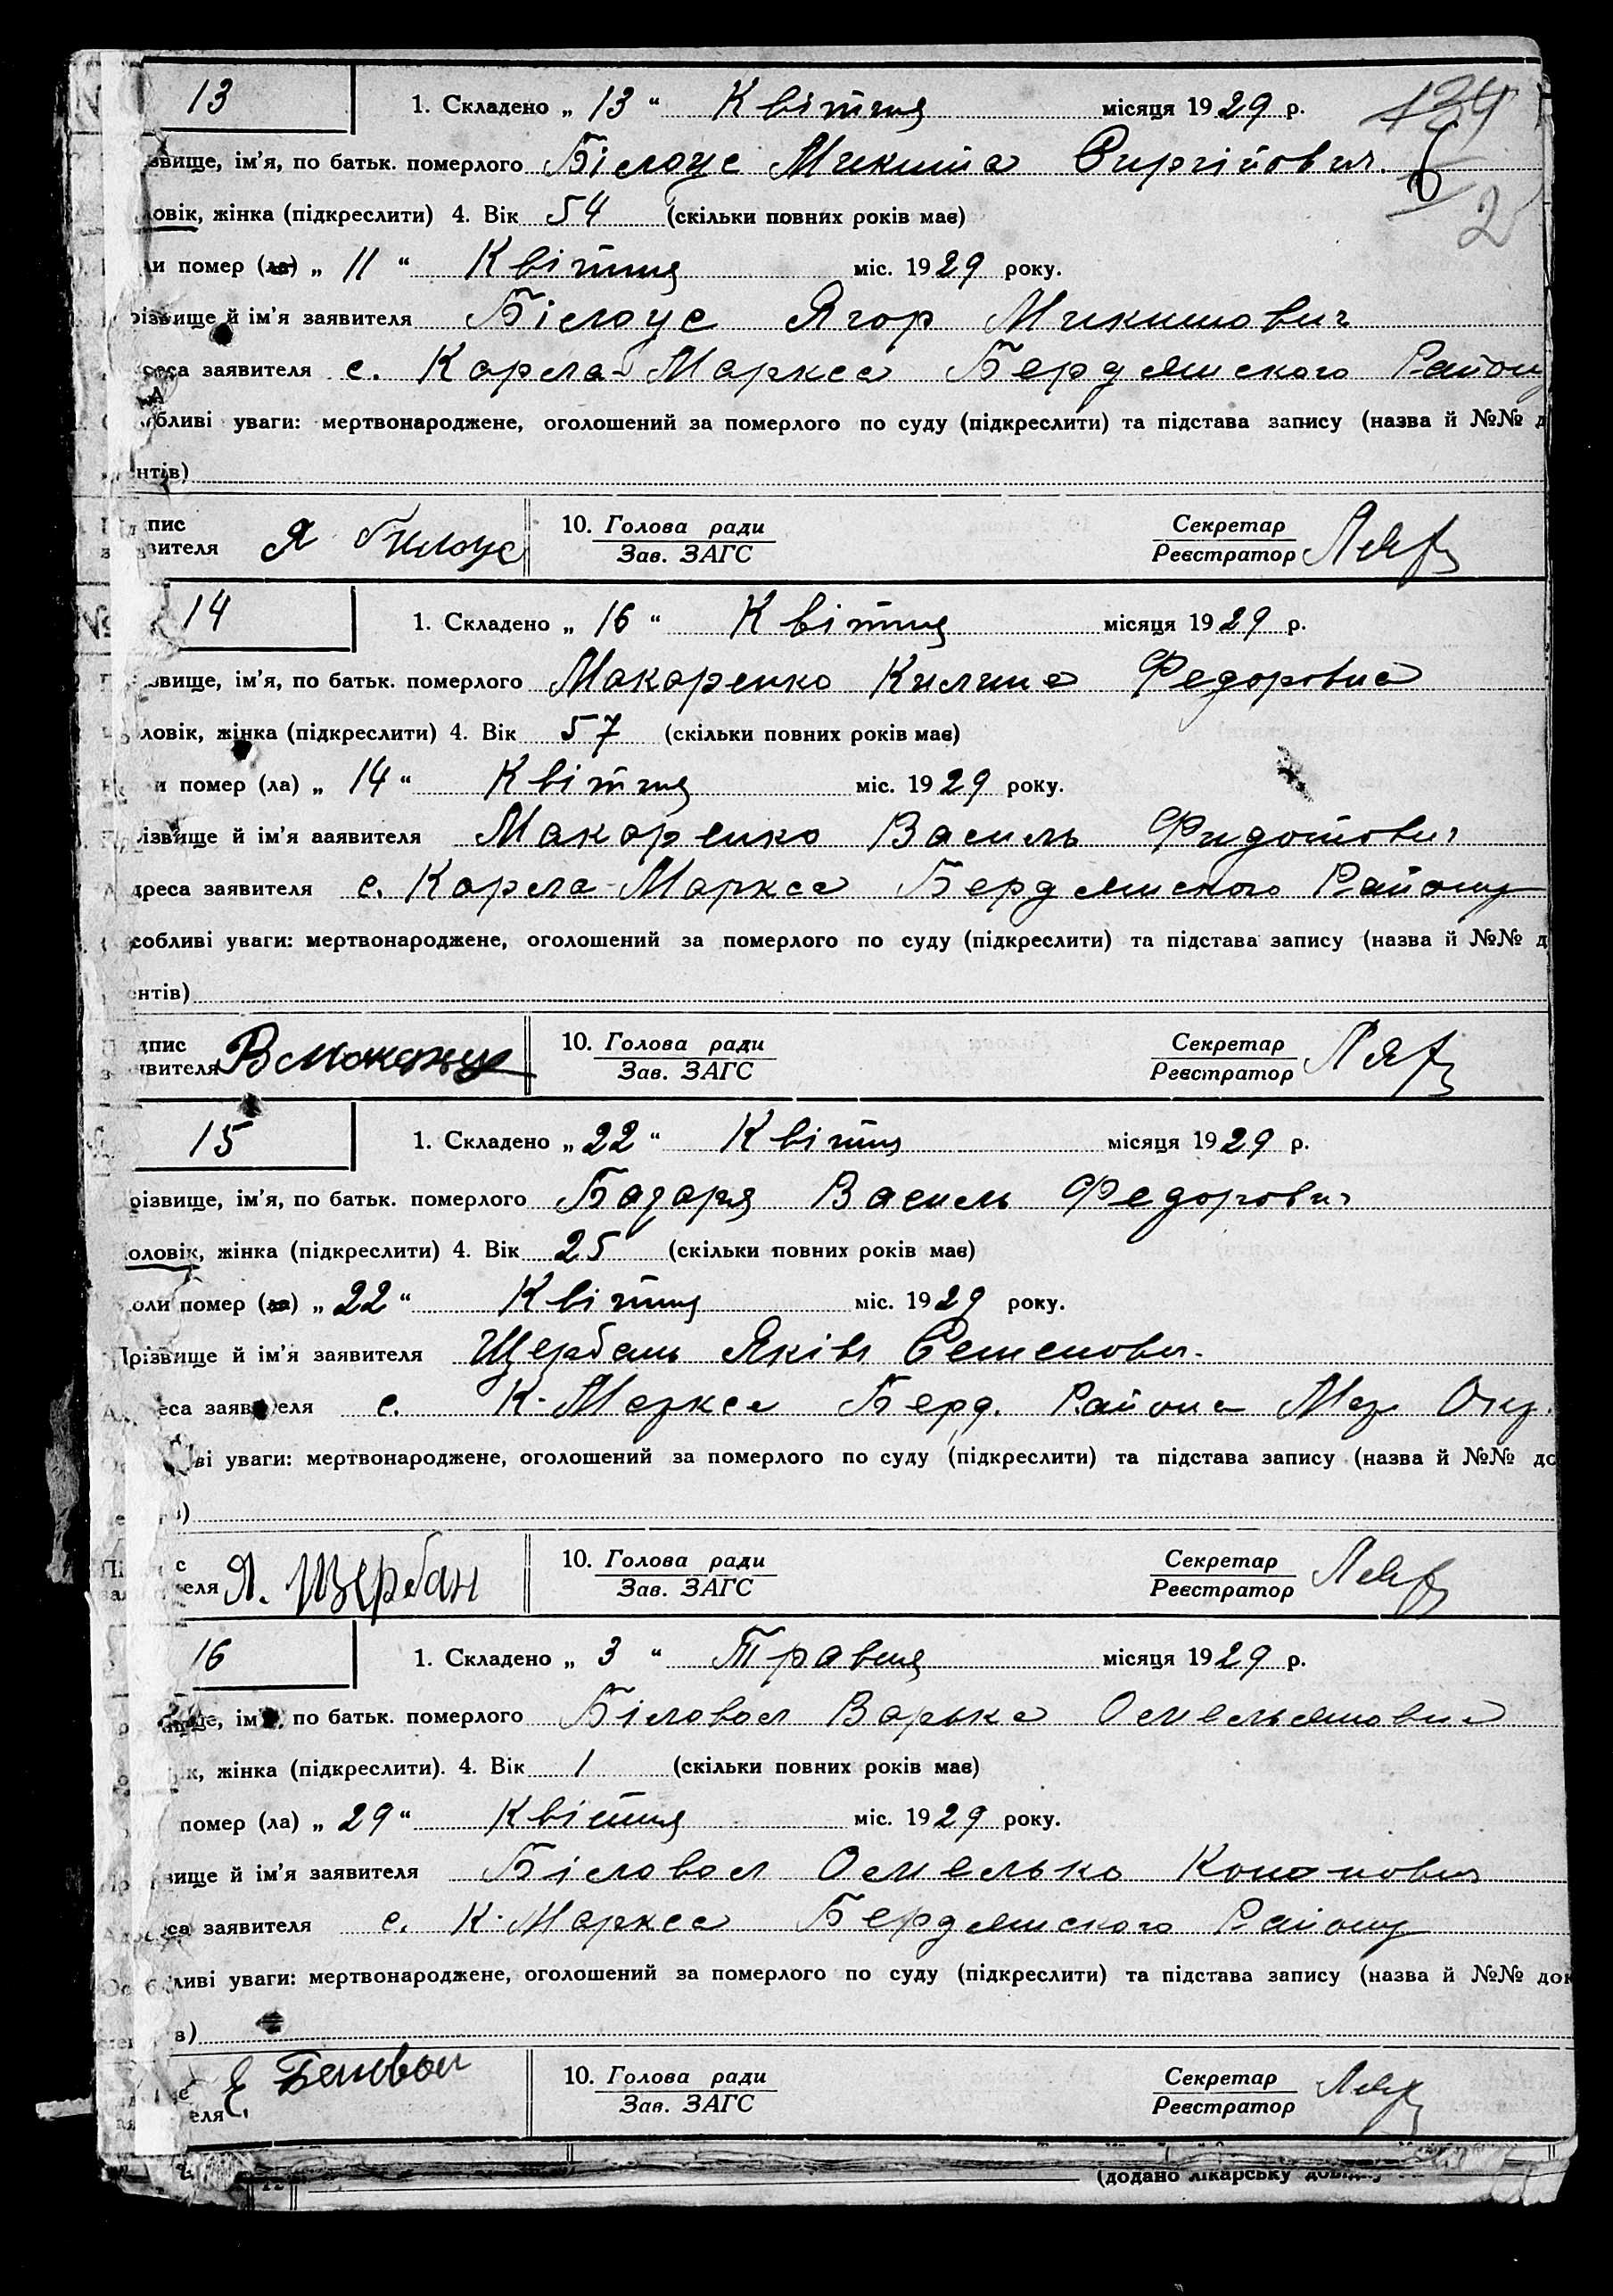 13
1. Складено „ 13 “ Квітня місяця 1929 р.
звище, ім’я, по батьк. померлого Білоус Микита Сиргійович.
ловік, жінка (підкреслити) 4. Вік 54 (скільки повних років має)
ли помер (ла) „ 11 “ Квітня міс. 1929 року.
різвище й ім’я заявителя Білоус Ягор Микитович
реса заявителя с. Карла-Маркса Бердянского Району
обливі уваги: мертвонароджене, оголошений за померлого по суду (підкреслити) та підстава запису (назва й №№ д
ентів)
Підпис заявителя Я Билоус 10. Голова ради Зав. ЗАГС Секретар Реєстратор
№ 14
1. Складено „ 16 “ Квітня місяця 1929 р.
звище, ім’я, по батьк. померлого Макаренко Килина Федоровна
ловік, жінка (підкреслити) 4. Вік 57 (скільки повних років має)
и помер (ла) „ 14 “ Квітня міс. 1929 року.
різвище й ім’я ааявителя Макаренко Василь Фидотович
Адреса заявителя с. Карла-Маркса Бердянского Району
собливі уваги: мертвонароджене, оголошений за померлого по суду (підкреслити) та підстава запису (назва й №№ д
ентів)
Підпис заявителя 10. Голова ради Зав. ЗАГС Секретар Реєстратор
15
1. Складено „ 22 “ Квітня місяця 1929 р.
різвище, ім’я, по батьк. померлого Базаря Василь Федорович
оловік, жінка (підкреслити) 4. Вік 25 (скільки повних років має)
оли помер (ла) „ 22 “ Квітня міс. 1929 року.
Прізвище й ім’я заявителя Щербань Яків Семенович
Адреса заявителя с. К-Маркса Берд. Района Мар. Окр.
ві уваги: мертвонароджене, оголошений за померлого по суду (підкреслити) та підстава запису (назва й №№ до
в)
Підпис заявителя Я. Щербан 10. Голова ради Зав. ЗАГС Секретар Реєстратор
16
1. Складено „ 3 “ Травня місяця 1929 р.
ім’я, по батьк. померлого Біловол Варька Омельяновна
ік, жінка (підкреслити). 4. Вік 1 (скільки повних років має)
помер (ла) „ 29 “ Квітня міс. 1929 року.
Прізвище й ім’я заявителя Біловол Омелько Кононович
Адреса заявителя с. К-Маркса Бердянского Району
Особливі уваги: мертвонароджене, оголошений за померлого по суду (підкреслити) та підстава запису (назва й №№ док
в)
еля Е Беловол 10. Голова ради Зав. ЗАГС Секретар Реєстратор
(додано лікарську довідку